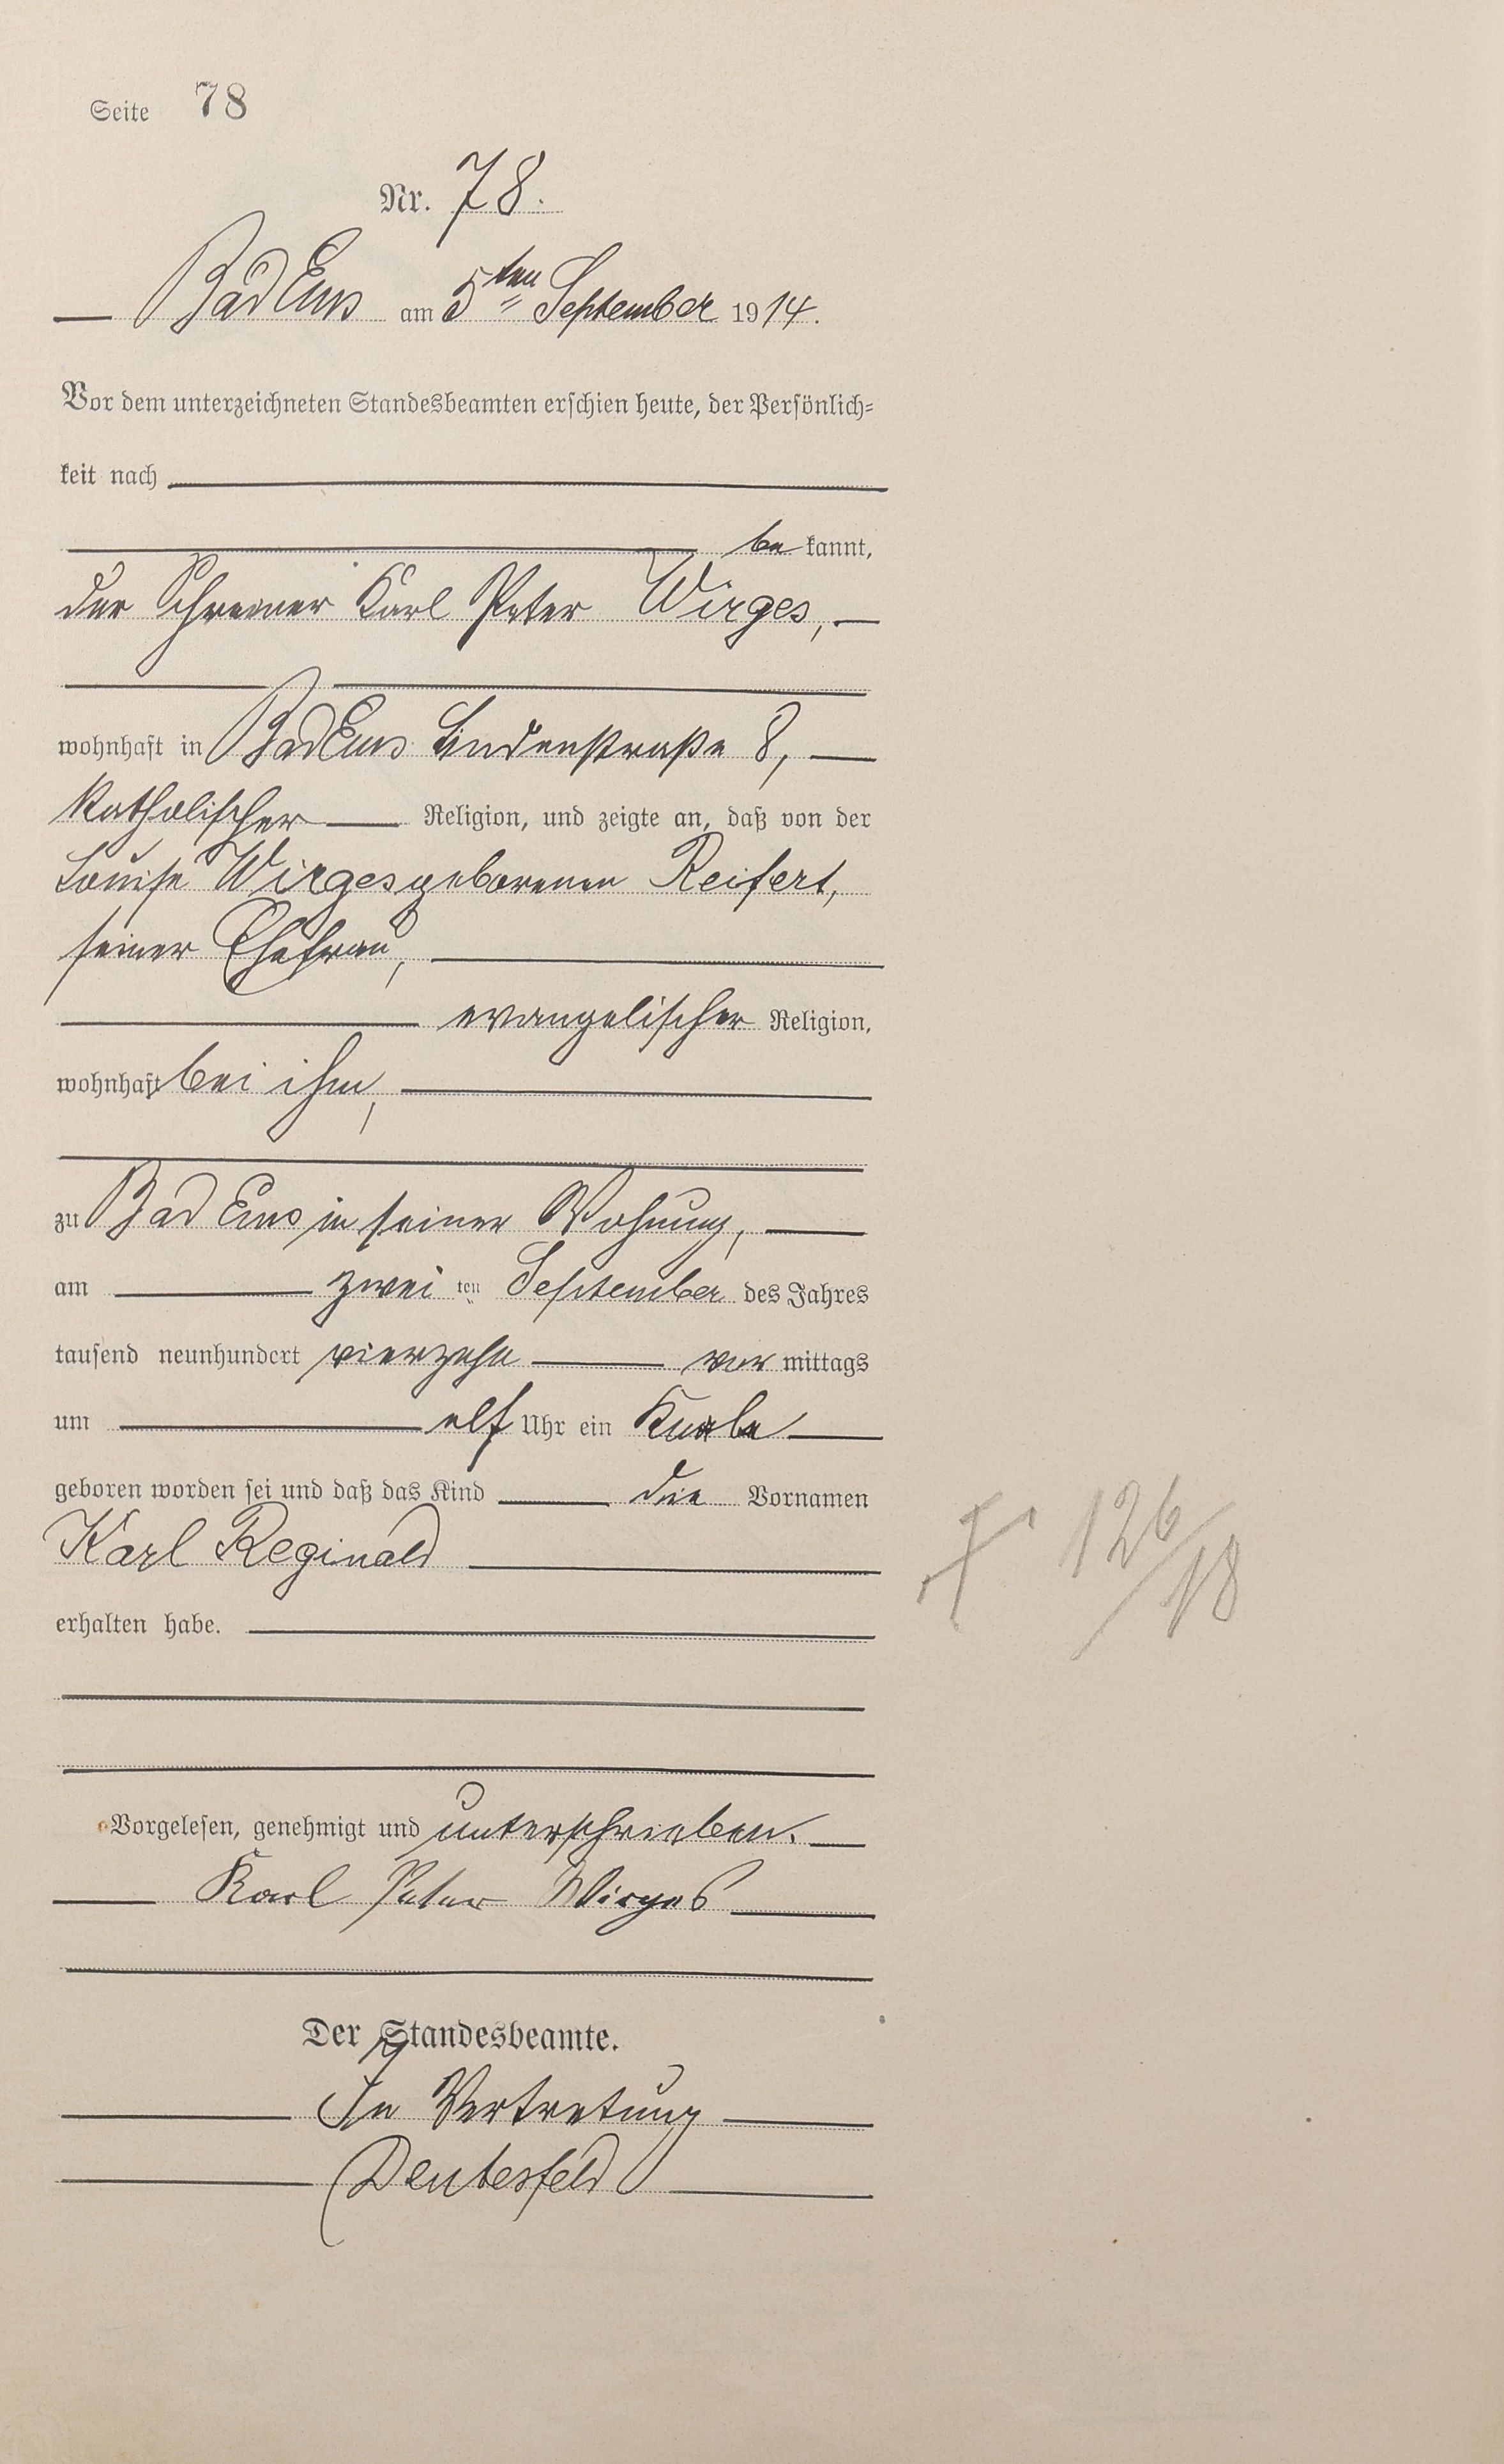 Seite 78
Nr. 78.
Bad Ems am 5ten September 1914.
Vor dem unterzeichneten Standesbeamten erschien heute, der Persönlich-
keit nach
be kannt,
der Schreiner Karl Peter Wirges,
wohnhaft in Bad Ems Lindenstraße 8,
katholischer Religion, und zeigte an, daß von der
Louise Wirges geborenen Reifert,
seiner Ehefrau,
evangelischer Religion,
wohnhaft bei ihm,
zu Bad Ems in seiner Wohnung,
am zwei ten September des Jahres
tausend neunhundert vierzehn vor mittags
um elf Uhr ein Knabe
geboren worden sei und daß das Kind die Vornamen
Karl Reginald
† 126/18
erhalten habe.
Vorgelesen, genehmigt und unterschrieben.
Karl Peter Wirges
Der Standesbeamte.
In Vertretung
Deutesfeld